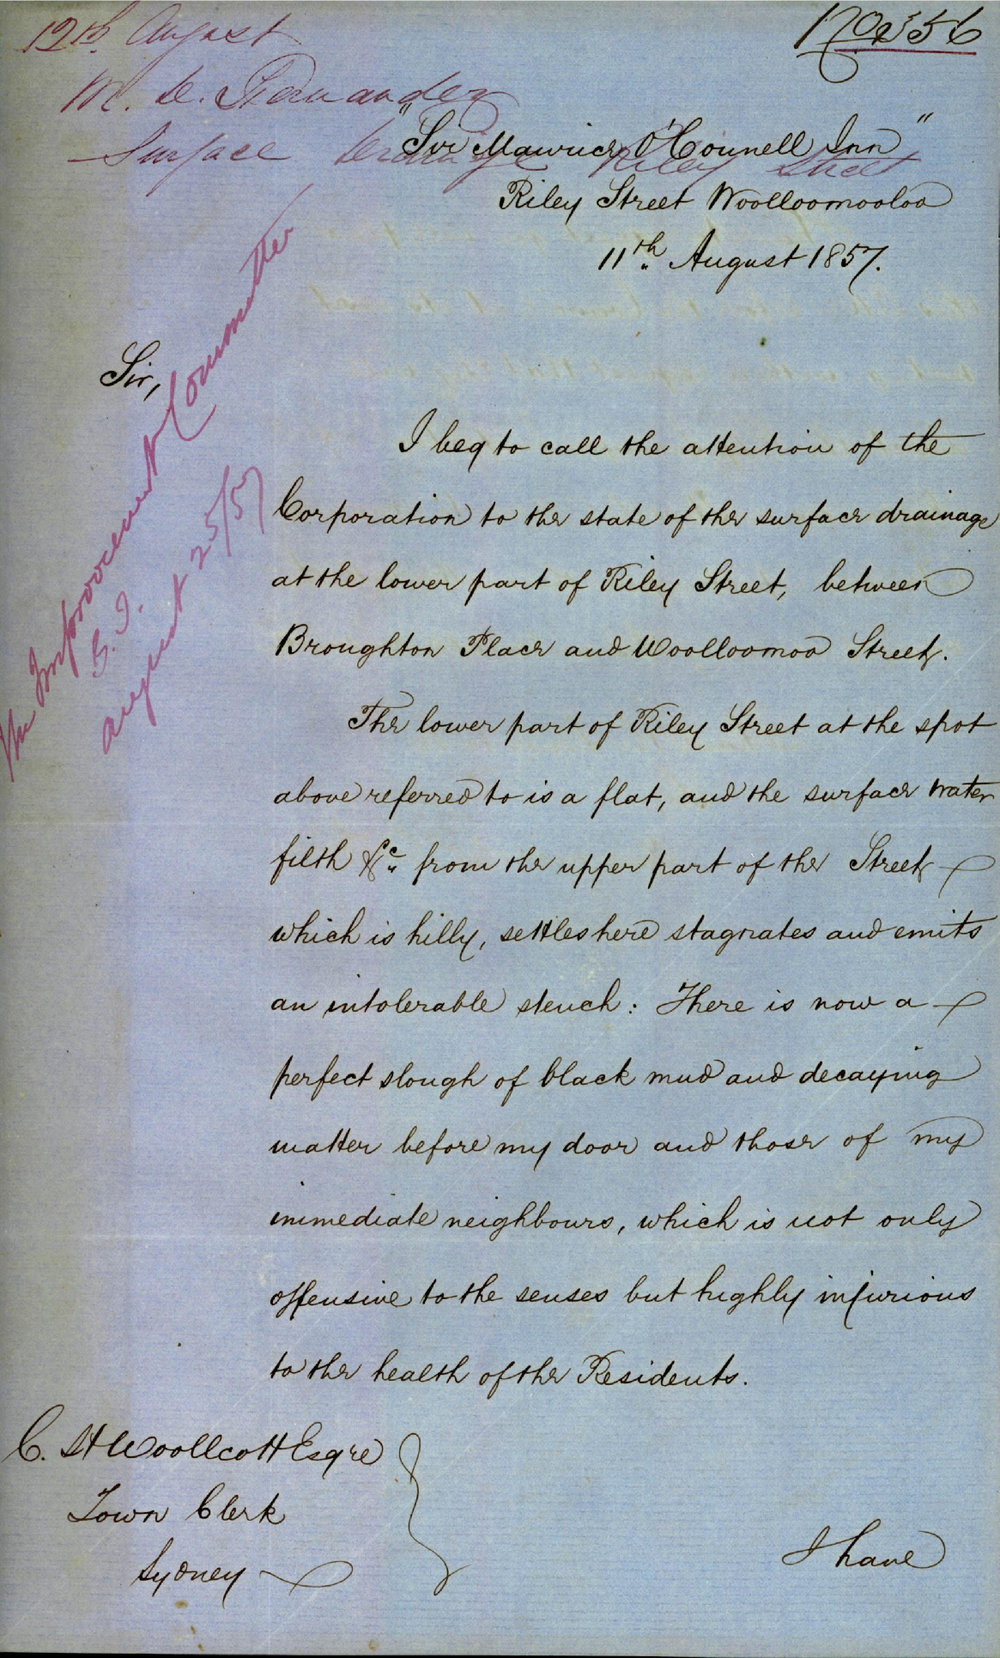 12th August
No 356
M. D. Fernandez
Surface drainage Riley Street
"Sir Maurice O'Connell Inn"
Riley Street Woolloomooloo
11th August 1857.
Sir,
I beg to call the attention of the
Corporation to the state of the surface drainage
at the lower part of Riley Street, between
Broughton Place and Woolloomoo Street.
The lower part of Riley Street at the spot
above referred to is a flat, and the surface water
filth &c from the upper part of the Street
which is hilly, settles here stagnates and emits
an intolerable stench: There is now a
perfect slough of black mud and decaying
matter before my door and those of my
immediate neighbours, which is not only
offensive to the senses but highly injurious
to the health of the Residents.
Improvement Committee
August 25/57
C. H Woollcott Esqre
Town Clerk
Sydney
I have